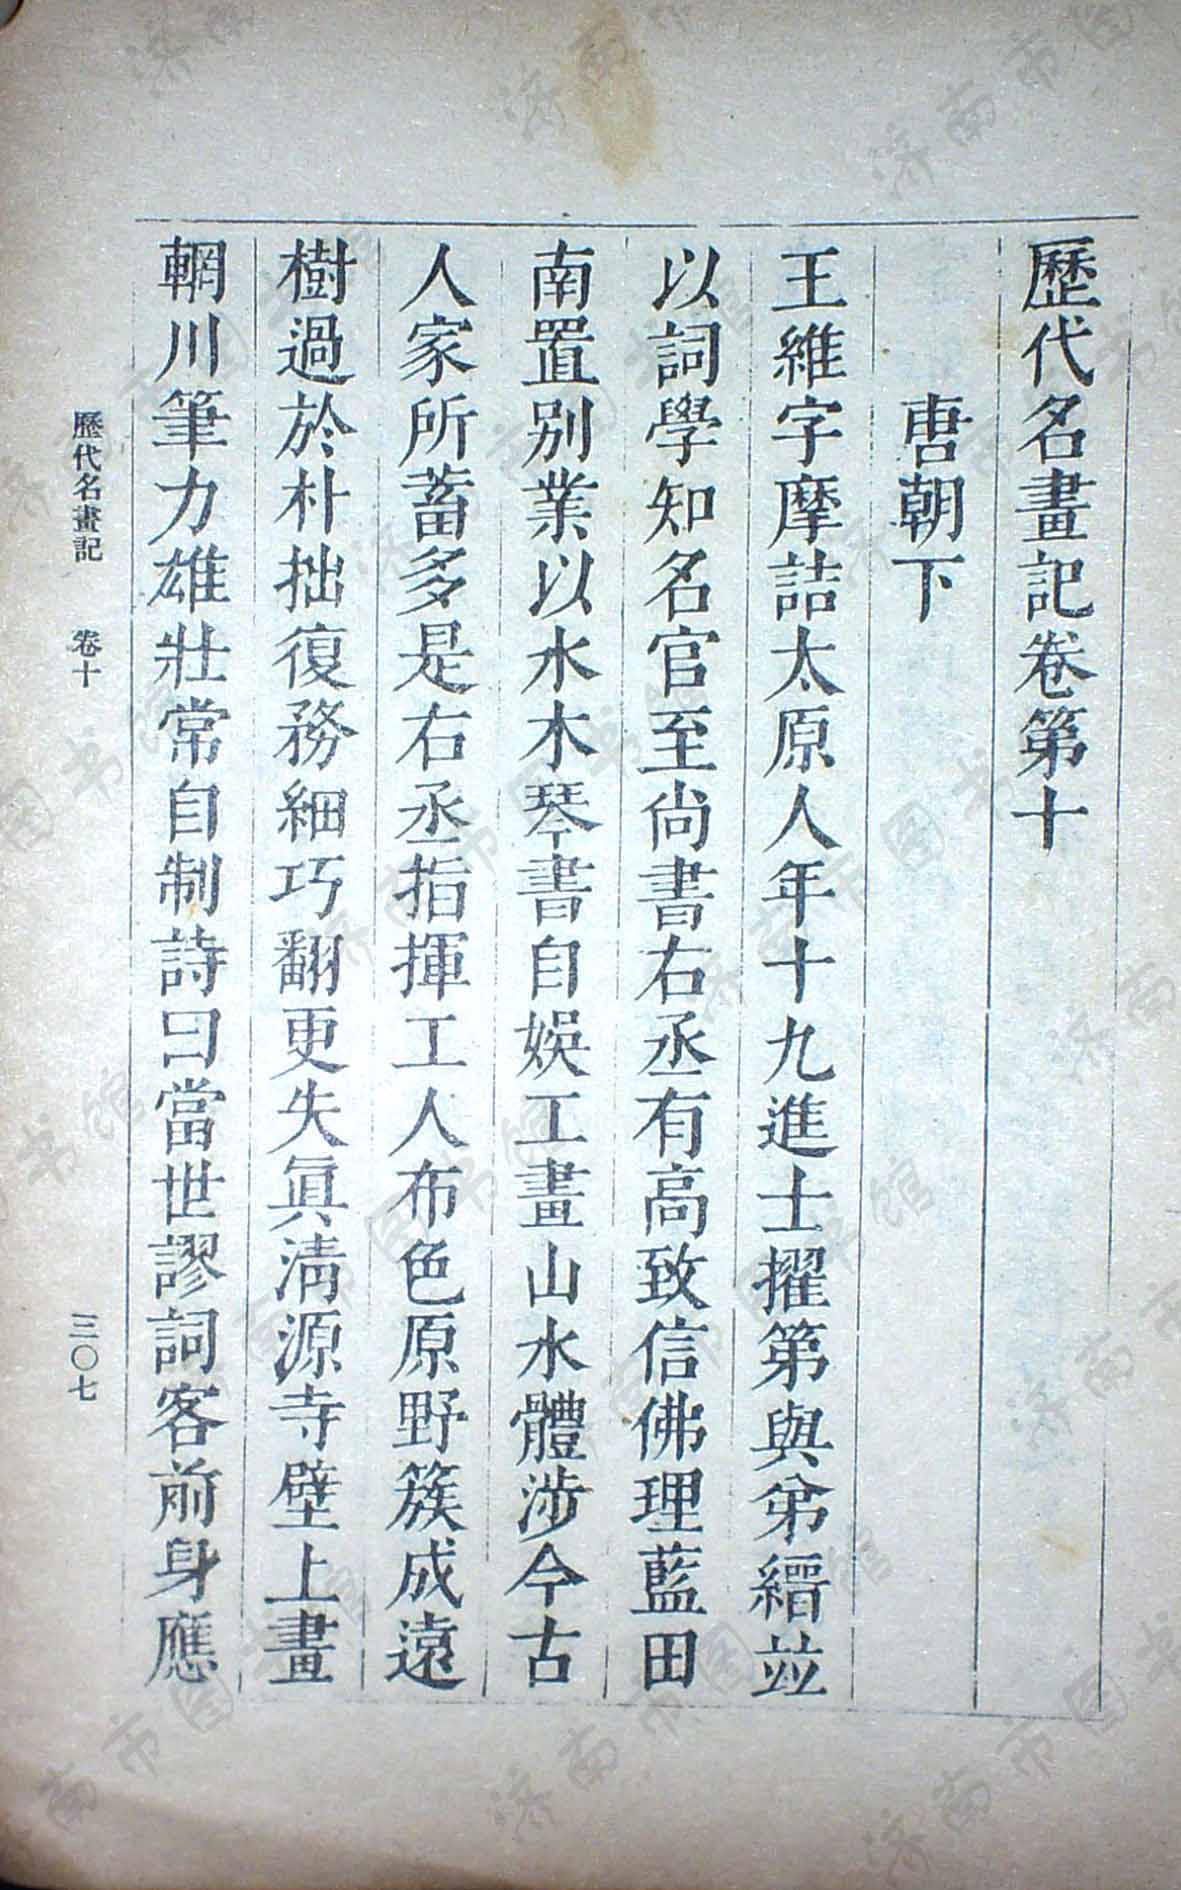 歷代名畫記卷第十
唐朝下
王維字摩詰太原人年十九進士擢第與弟縉並
以詞學知名官至尚書右丞有高致信佛理藍田
南置別業以水木琴書自娛工畫山水體涉今古
人家所蓄多是右丞指揮工人布色原野簇成遠
樹過於朴拙復務細巧翻更失眞清源寺壁上畫
輞川筆力雄壯常自制詩曰當世謬詞客前身應
歷代名畫記 卷十 三〇七
济南市图书馆